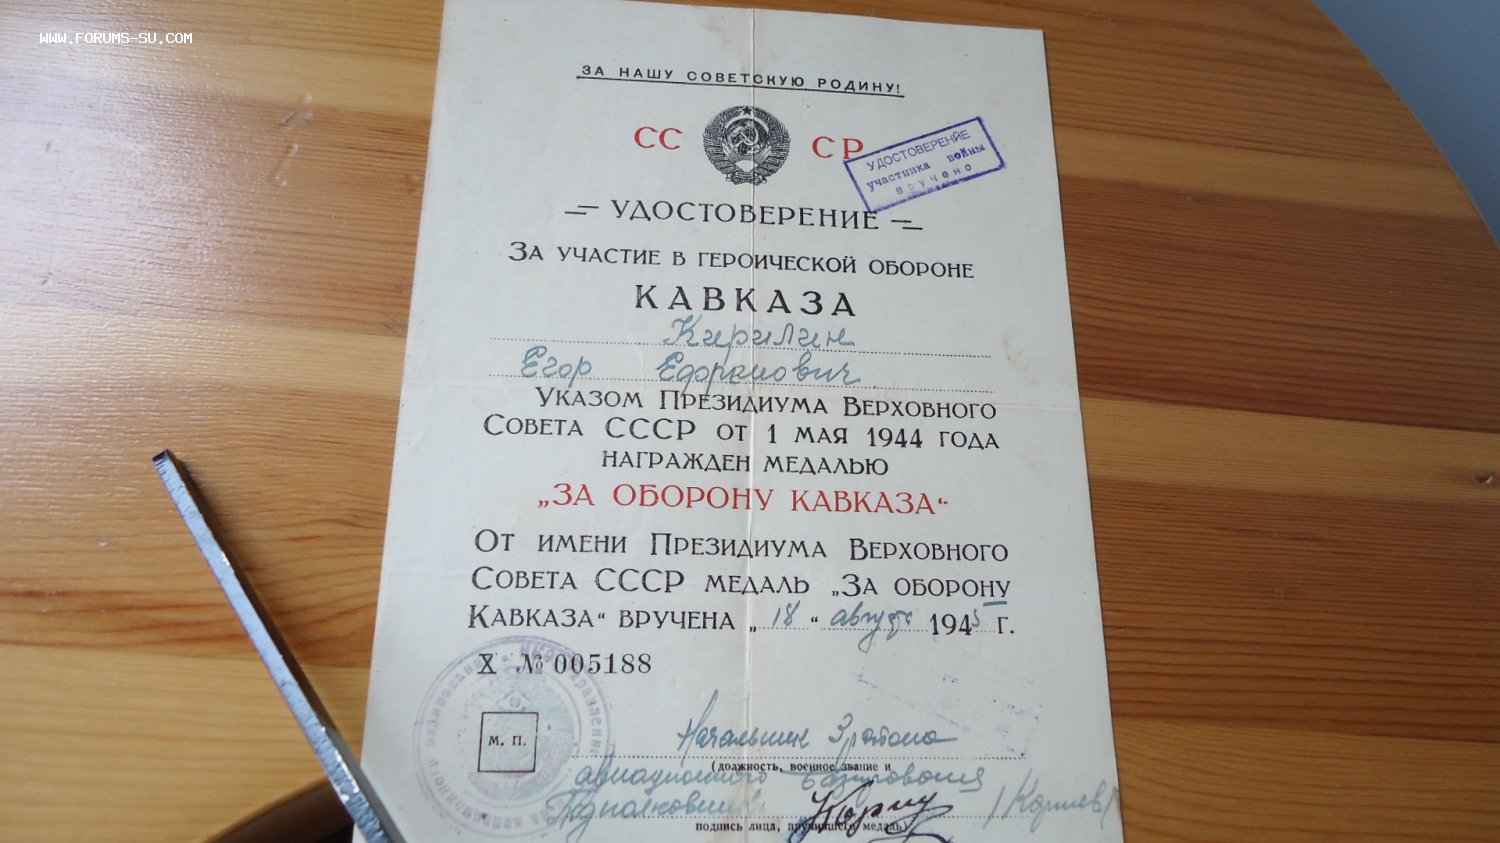 WWW.FORUMS-SU.COM
ЗА НАШУ СОВЕТСКУЮ РОДИНУ!
СС СР
УДОСТОВЕРЕНИЕ
участника войны
вручено
УДОСТОВЕРЕНИЕ
ЗА УЧАСТИЕ В ГЕРОИЧЕСКОЙ ОБОРОНЕ
КАВКАЗА
Кирилин
Егор
УКАЗОМ ПРЕЗИДИУМА ВЕРХОВНОГО
СОВЕТА СССР ОТ 1 МАЯ 1944 ГОДА
НАГРАЖДЕН МЕДАЛЬЮ
„ЗА ОБОРОНУ КАВКАЗА“
ОТ ИМЕНИ ПРЕЗИДИУМА ВЕРХОВНОГО
СОВЕТА СССР МЕДАЛЬ „ЗА ОБОРОНУ
КАВКАЗА“ ВРУЧЕНА „18“ августа 1945 Г.
X № 005188
М. П.
Начальник 3 района
(должность, военное звание и
авиационного базирования
Подполковник
подпись лица, вручившего медаль)